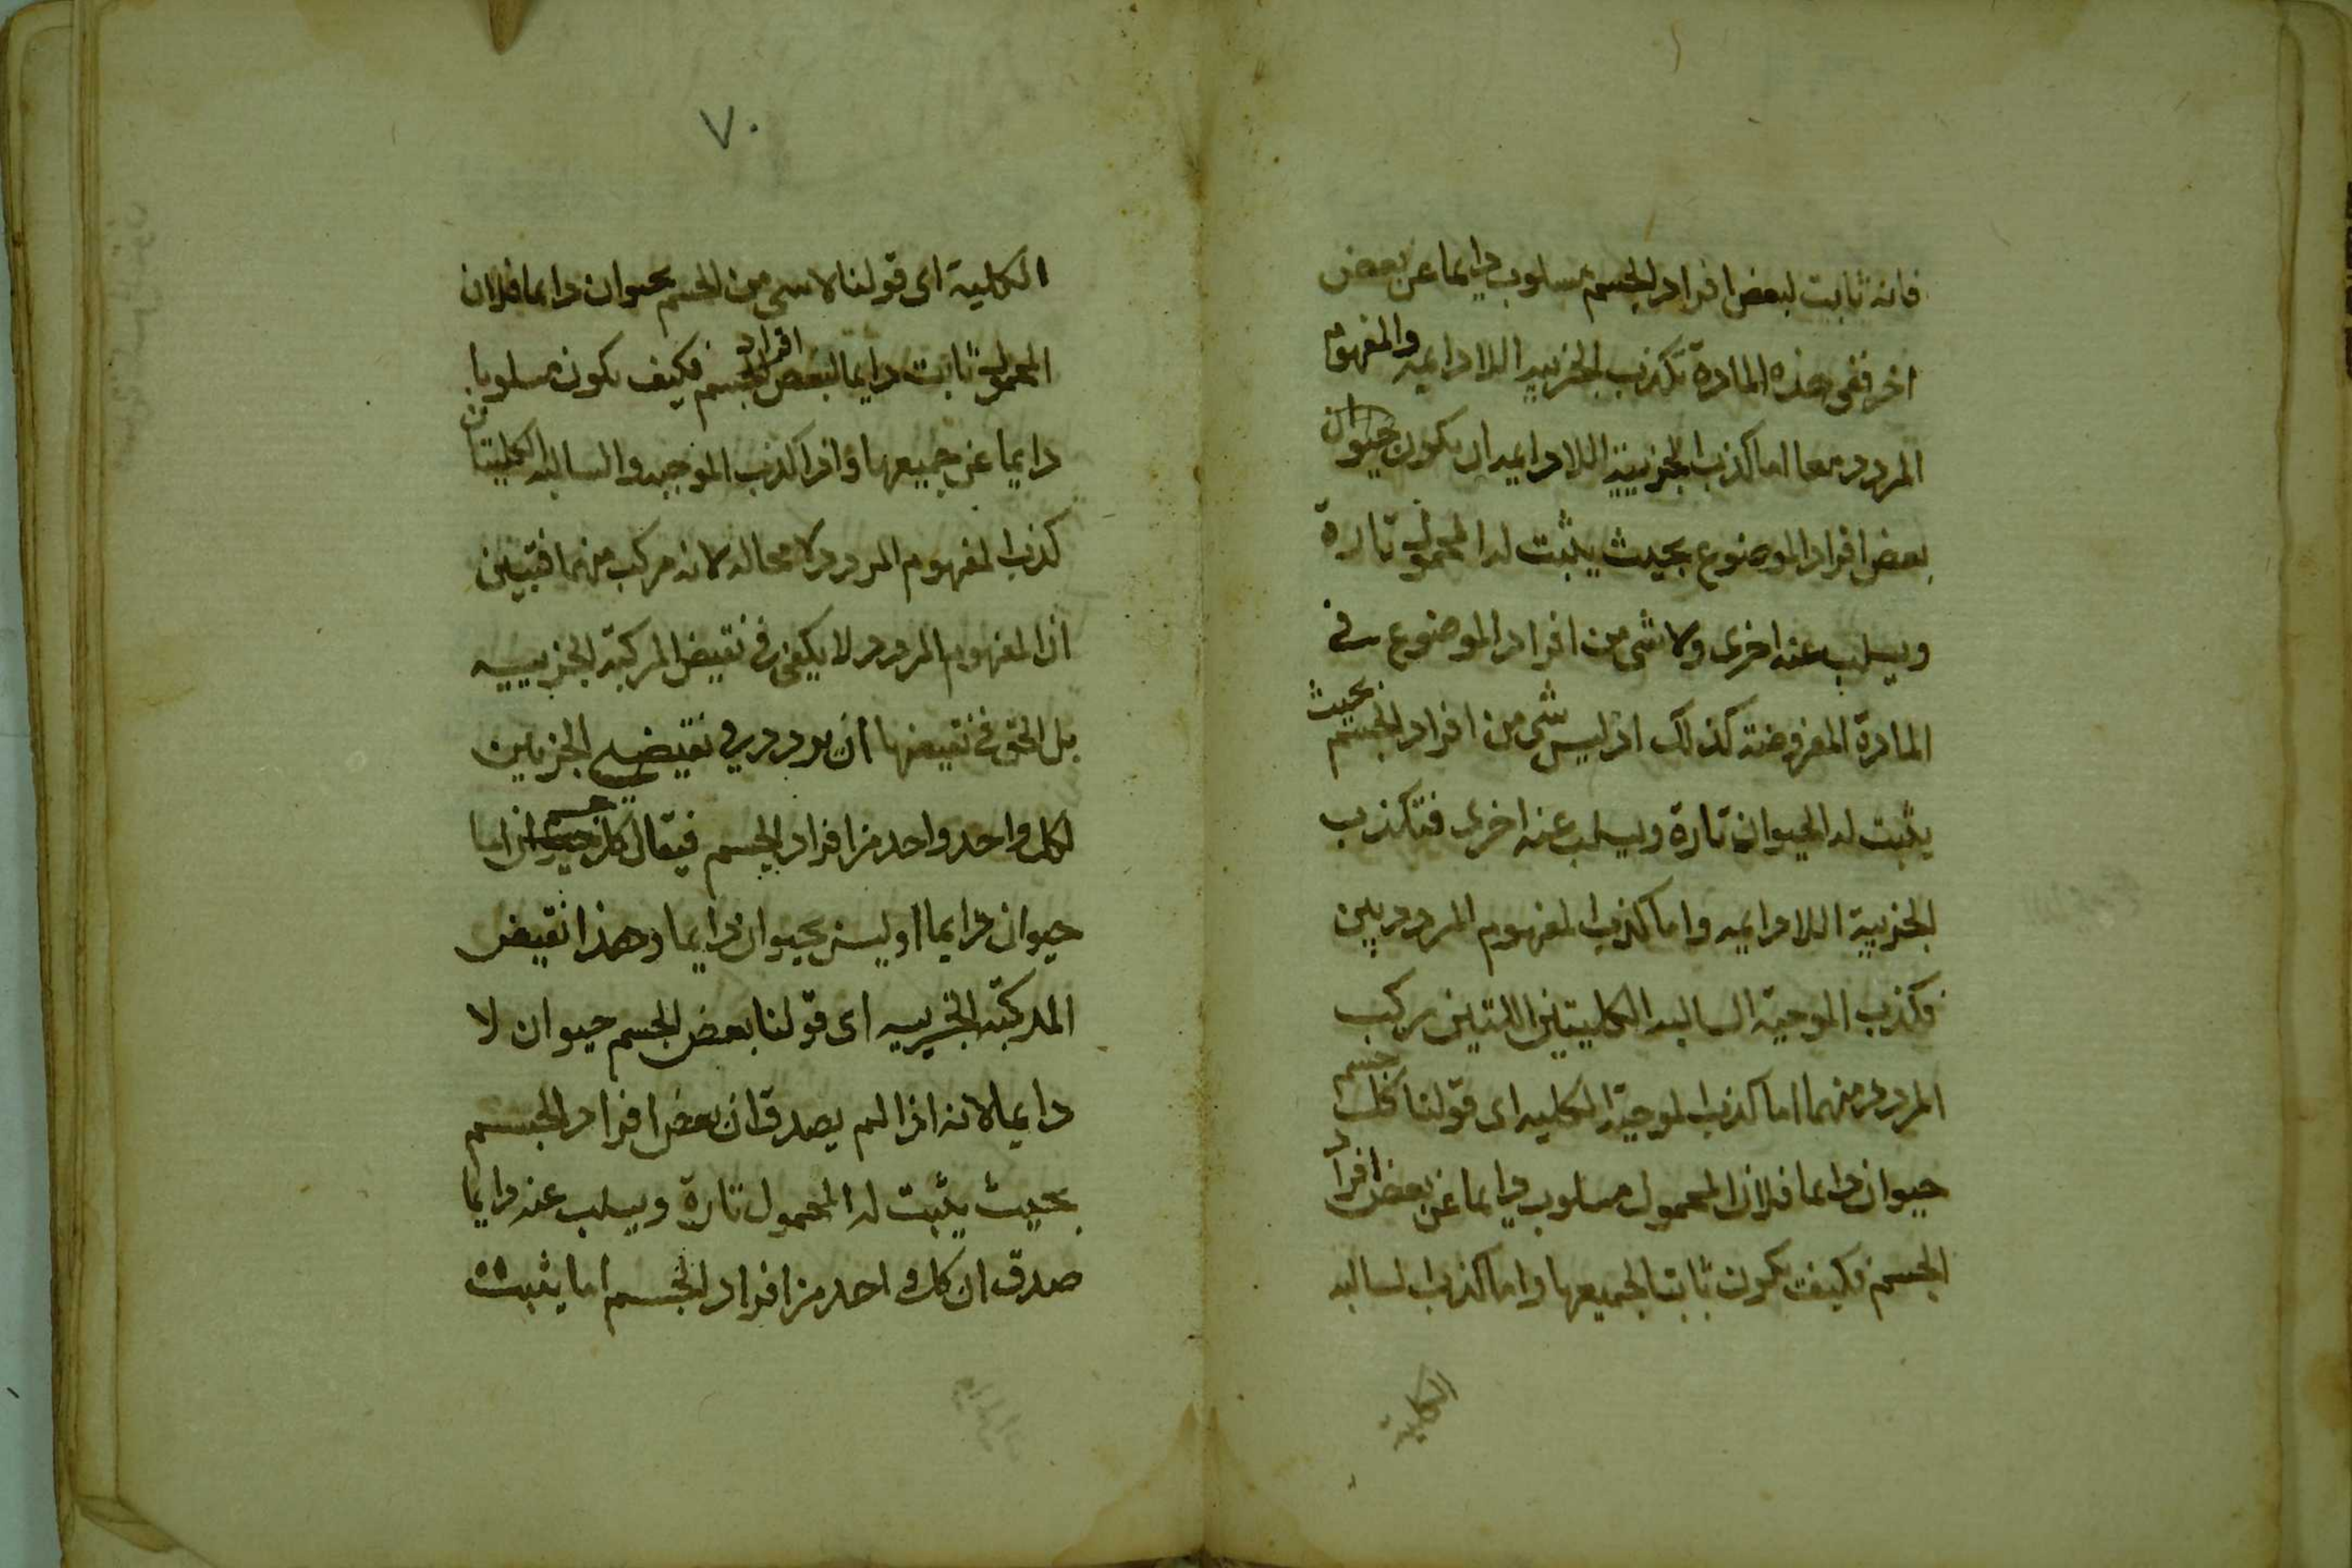 فانه ثابت لبعض افراد الجسم مسلوب دايما عن بعض
اخر ففى هذه المادة تكذب الجزيية اللا دايمه والمفهوم
المردد معا اما كذب الجزيية اللا دايمه ان يكون حيوان
بعض افراد الموضوع بحيث يثبت له المحمول تارة
ويسلب عنه اخرى ولا شى من افراد الموضوع فى
المادة المفروضة كذلك اذ ليس شى من افراد الجسم بحيث
يثبت له الحيوان تارة ويسلب عنه اخرى فتكذب
الجزيية اللا دايمه واما كذب المفهوم المردد بين
فكذب الموجبة السالبه الكليتين اللتين ركب
المردد منهما اما كذب الموجبة الكليه اى قولنا كل جسم
حيوان دايما فلان المحمول مسلوب دايما عن بعض افراد
الجسم فكيف يكون ثابتا لجميعها واما كذب السالبه
الكلية
٧٠
الكلية اى قولنا لا شى من الجسم بحيوان دايما فلان
المحمول ثابت دايما لبعض افراد الجسم فكيف يكون مسلوبا
دايما عن جميعها واذا كذب الموجبه والسالبه الكليتان
كذب المفهوم المردد لا محاله لانه مركب منهما فتبين
ان المفهوم المردد لا يكفى فى نقيض المركبة الجزييه
بل الحق فى نقيضها ان يردد فى نقيضى الجزيين
لكل واحد واحد من افراد الجسم فيقال كل جسم اما
حيوان دايما او ليس بحيوان دايما وهذا نقيض
المركبة الجزييه اى قولنا بعض الجسم حيوان لا
دايما لانه اذا لم يصدق ان بعض افراد الجسم
بحيث يثبت له المحمول تارة ويسلب عنه دايما
صدق ان كل واحد من افراد الجسم اما يثبت